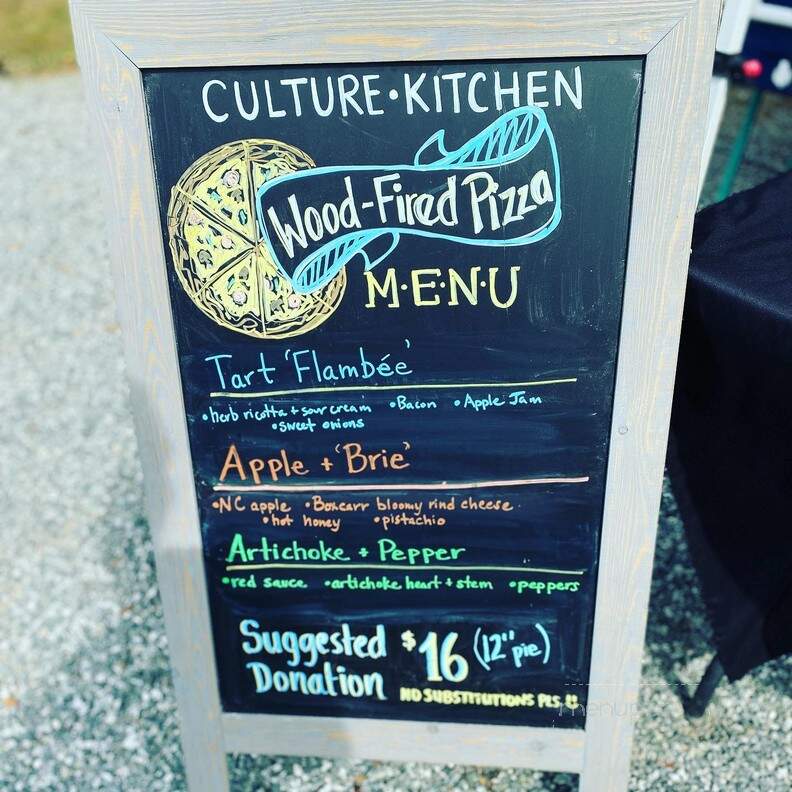 CULTURE•KITCHEN
Wood-Fired Pizza
M•E•N•U
Tart 'Flambée'
•herb ricotta + sour cream •Bacon •Apple Jam
•sweet onions
Apple + 'Brie'
•NC apple •Boxcarr bloomy rind cheese
•hot honey •pistachio
Artichoke + Pepper
•red sauce •artichoke heart + stem •peppers
Suggested $16 (12" pie)
Donation NO SUBSTITUTIONS PLS
menu